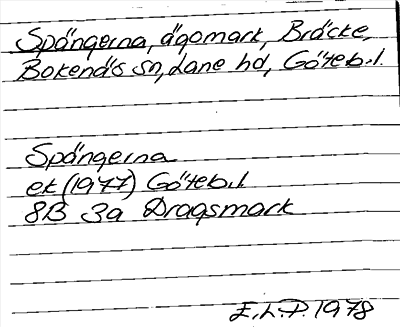 Spångerna, ägomark, Bräcke,
Bokenäs sn, Lane hd, Göteb.l.
Spångerna
ek (1977) Göteb.l
8B 3a Dragsmark
E.L.P. 1978